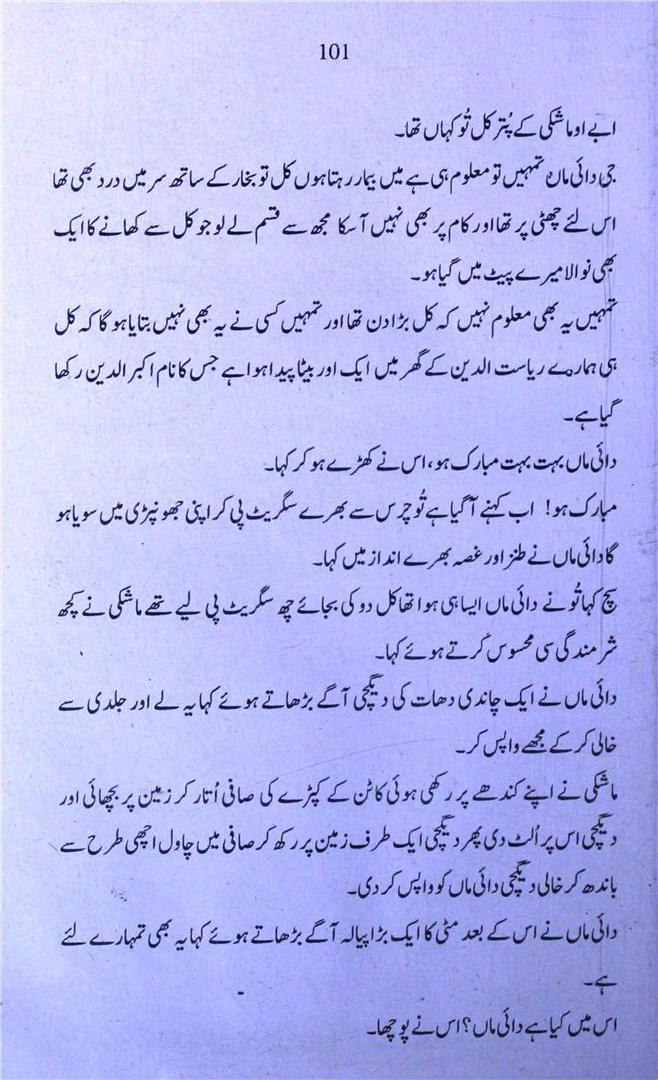 101
ابے او ماشکی کے پُتر کل تُو کہاں تھا۔
جی دائی ماں تمہیں تو معلوم ہی ہے میں بیمار رہتا ہوں کل تو بخار کے ساتھ سر میں درد بھی تھا
اس لئے چھٹی پر تھا اور کام پر بھی نہیں آ سکا مجھ سے قسم لے لو جو کل سے کھانے کا ایک
بھی نوالا میرے پیٹ میں گیا ہو۔
تمہیں یہ بھی معلوم نہیں کہ کل بڑا دن تھا اور تمہیں کسی نے یہ بھی نہیں بتایا ہو گا کہ کل
ہی ہمارے ریاست الدین کے گھر میں ایک اور بیٹا پیدا ہوا ہے جس کا نام اکبر الدین رکھا
گیا ہے۔
دائی ماں بہت بہت مبارک ہو، اس نے کھڑے ہو کر کہا۔
مبارک ہو! اب کہنے آ گیا ہے تُو چرس سے بھرے سگریٹ پی کر اپنی جھونپڑی میں سویا ہو
گا دائی ماں نے طنز اور غصہ بھرے انداز میں کہا۔
سچ کہا تُو نے دائی ماں ایسا ہی ہوا تھا کل دو کی بجائے چھ سگریٹ پی لیے تھے ماشکی نے کچھ
شرمندگی سی محسوس کرتے ہوئے کہا۔
دائی ماں نے ایک چاندی دھات کی دیگچی آگے بڑھاتے ہوئے کہا یہ لے اور جلدی سے
خالی کر کے مجھے واپس کر۔
ماشکی نے اپنے کندھے پر رکھی ہوئی کاٹن کے کپڑے کی صافی اُتار کر زمین پر بچھائی اور
دیگچی اس پر اُلٹ دی پھر دیگچی ایک طرف زمین پر رکھ کر صافی میں چاول اچھی طرح سے
باندھ کر خالی دیگچی دائی ماں کو واپس کر دی۔
دائی ماں نے اس کے بعد مٹی کا ایک بڑا پیالہ آگے بڑھاتے ہوئے کہا یہ بھی تمہارے لئے
ہے۔
اس میں کیا ہے دائی ماں؟ اس نے پوچھا۔